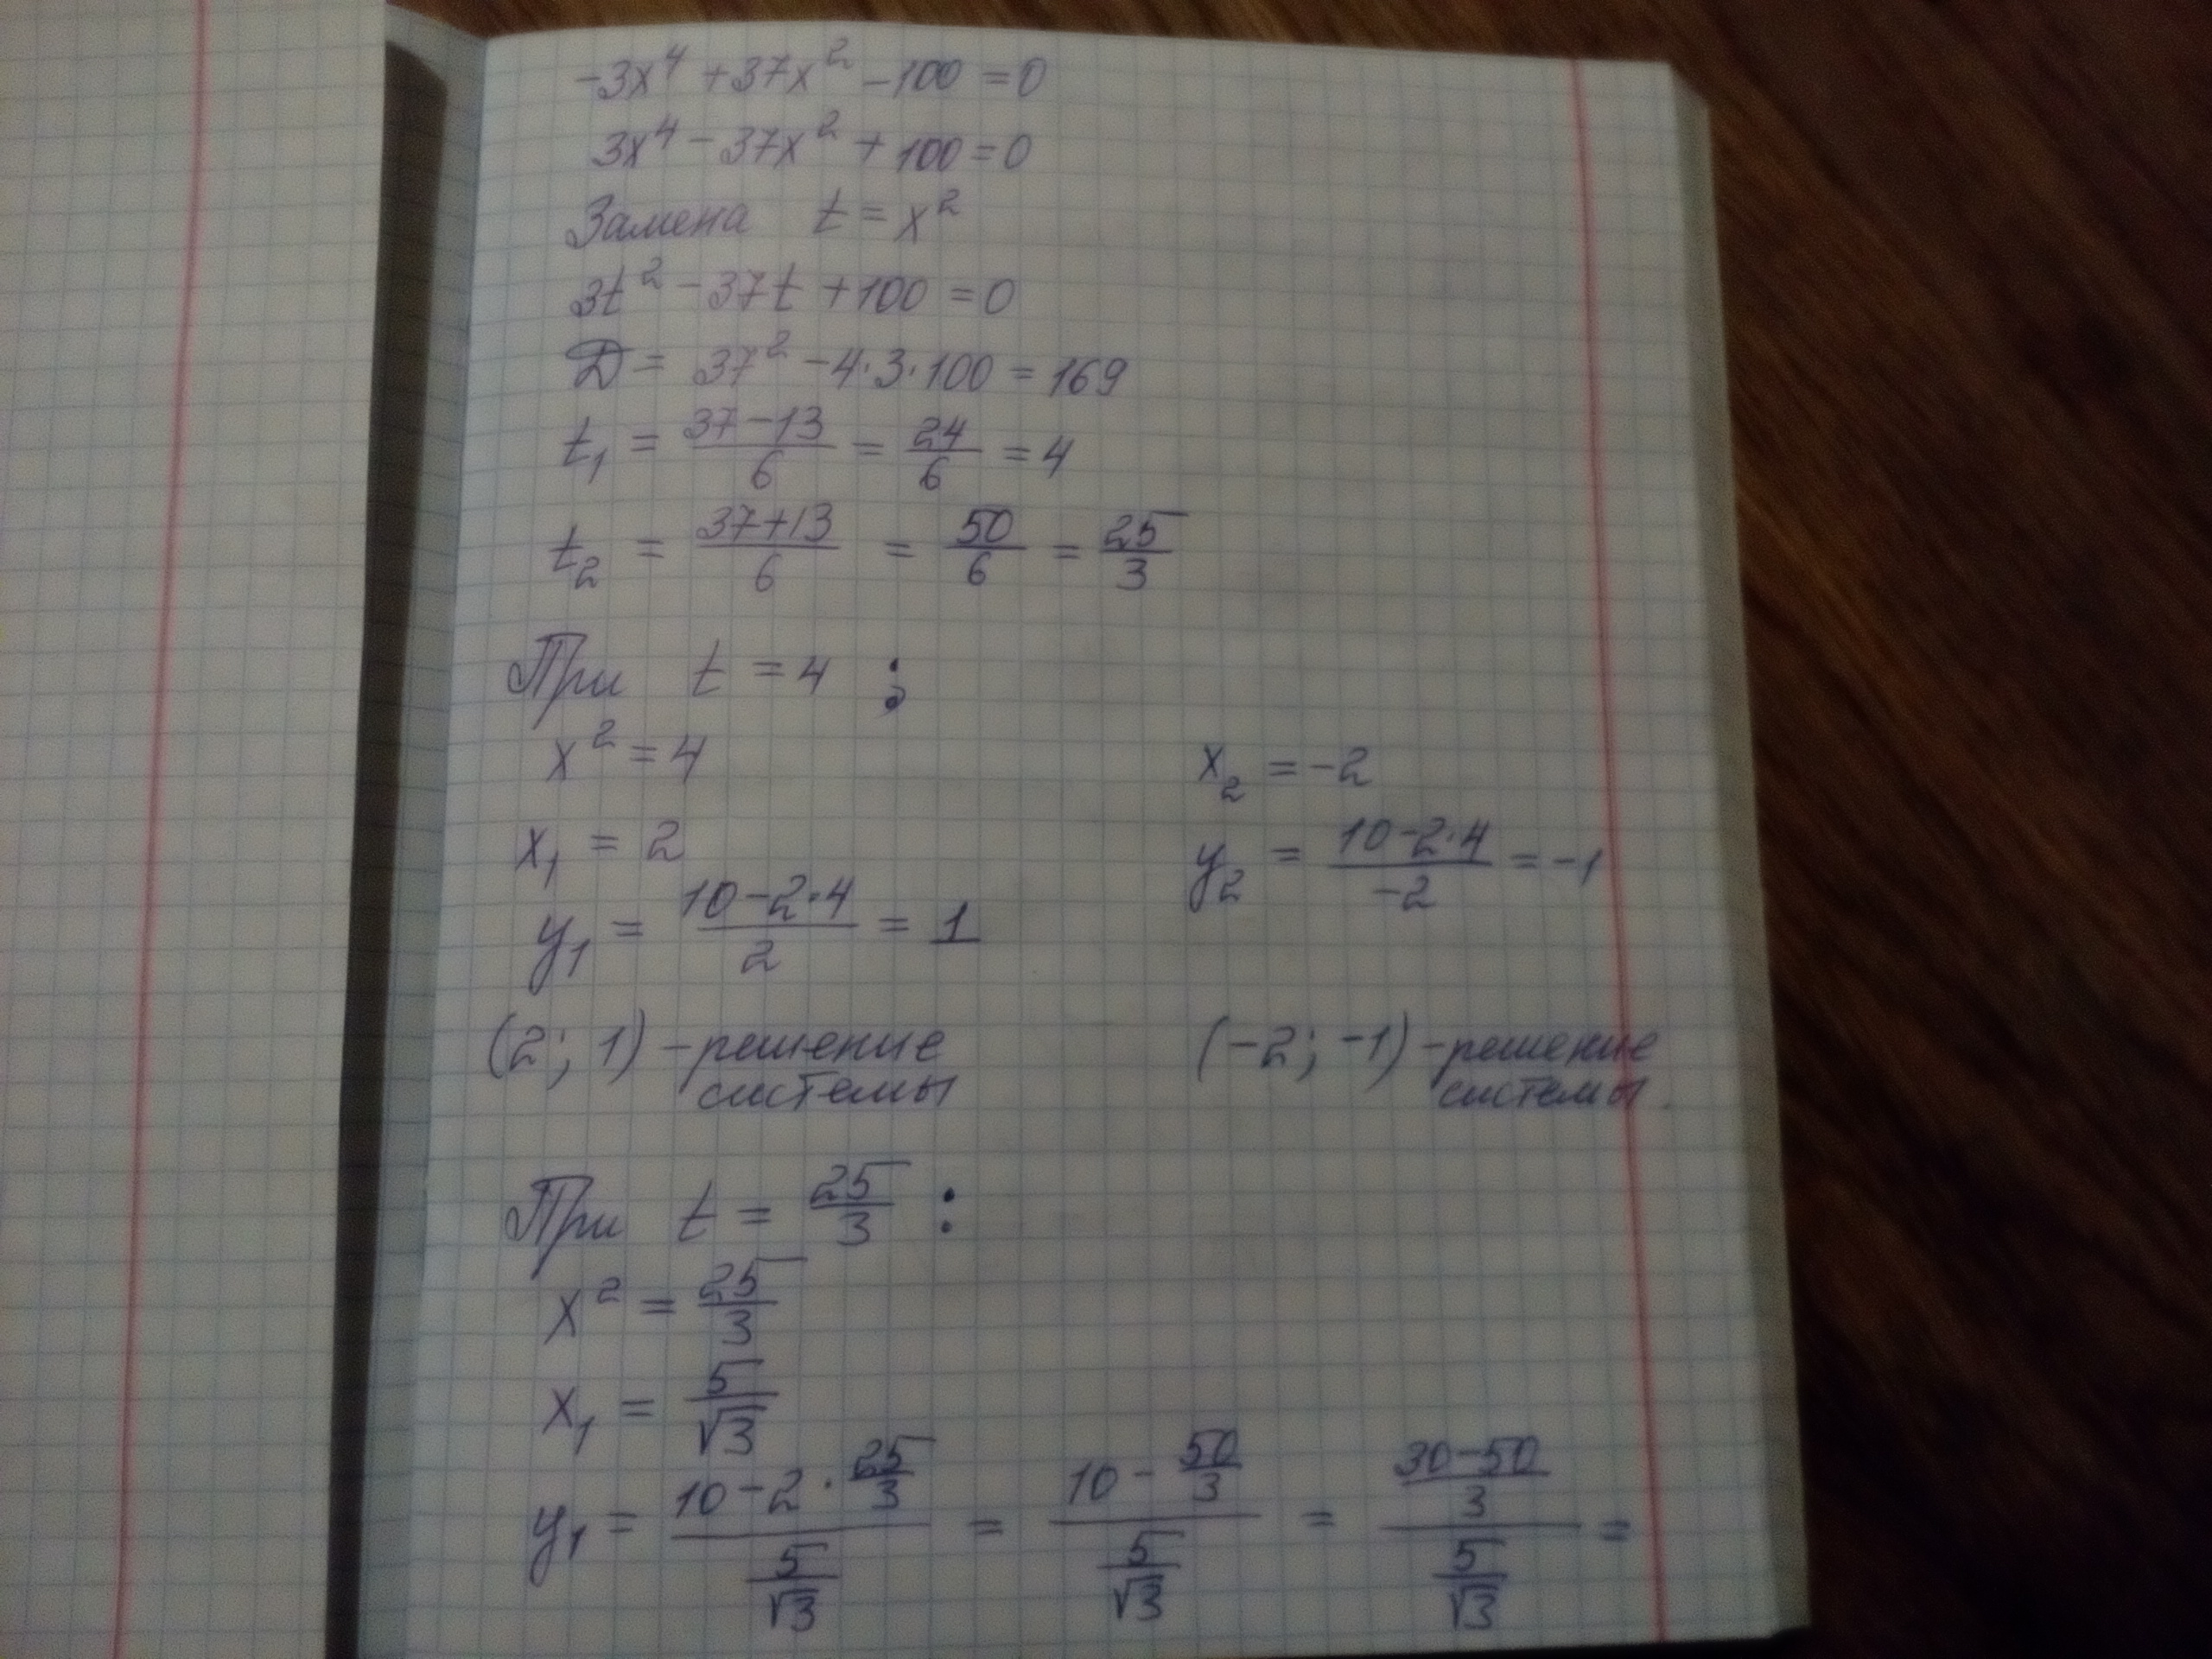 -3x⁴ + 37x² - 100 = 0
3x⁴ - 37x² + 100 = 0
Замена t = x²
3t² - 37t + 100 = 0
D = 37² - 4·3·100 = 169
t₁ = (37-13)/6 = 24/6 = 4
t₂ = (37+13)/6 = 50/6 = 25/3
При t = 4 ;
x² = 4
x₁ = 2
y₁ = (10-2·4)/2 = 1
(2; 1) - решение
системы
x₂ = -2
y₂ = (10-2·4)/(-2) = -1
(-2; -1) - решение
системы.
При t = 25/3 :
x² = 25/3
x₁ = 5/√3
y₁ = (10-2·25/3)/(5/√3) = (10-50/3)/(5/√3) = ((30-50)/3)/(5/√3) =